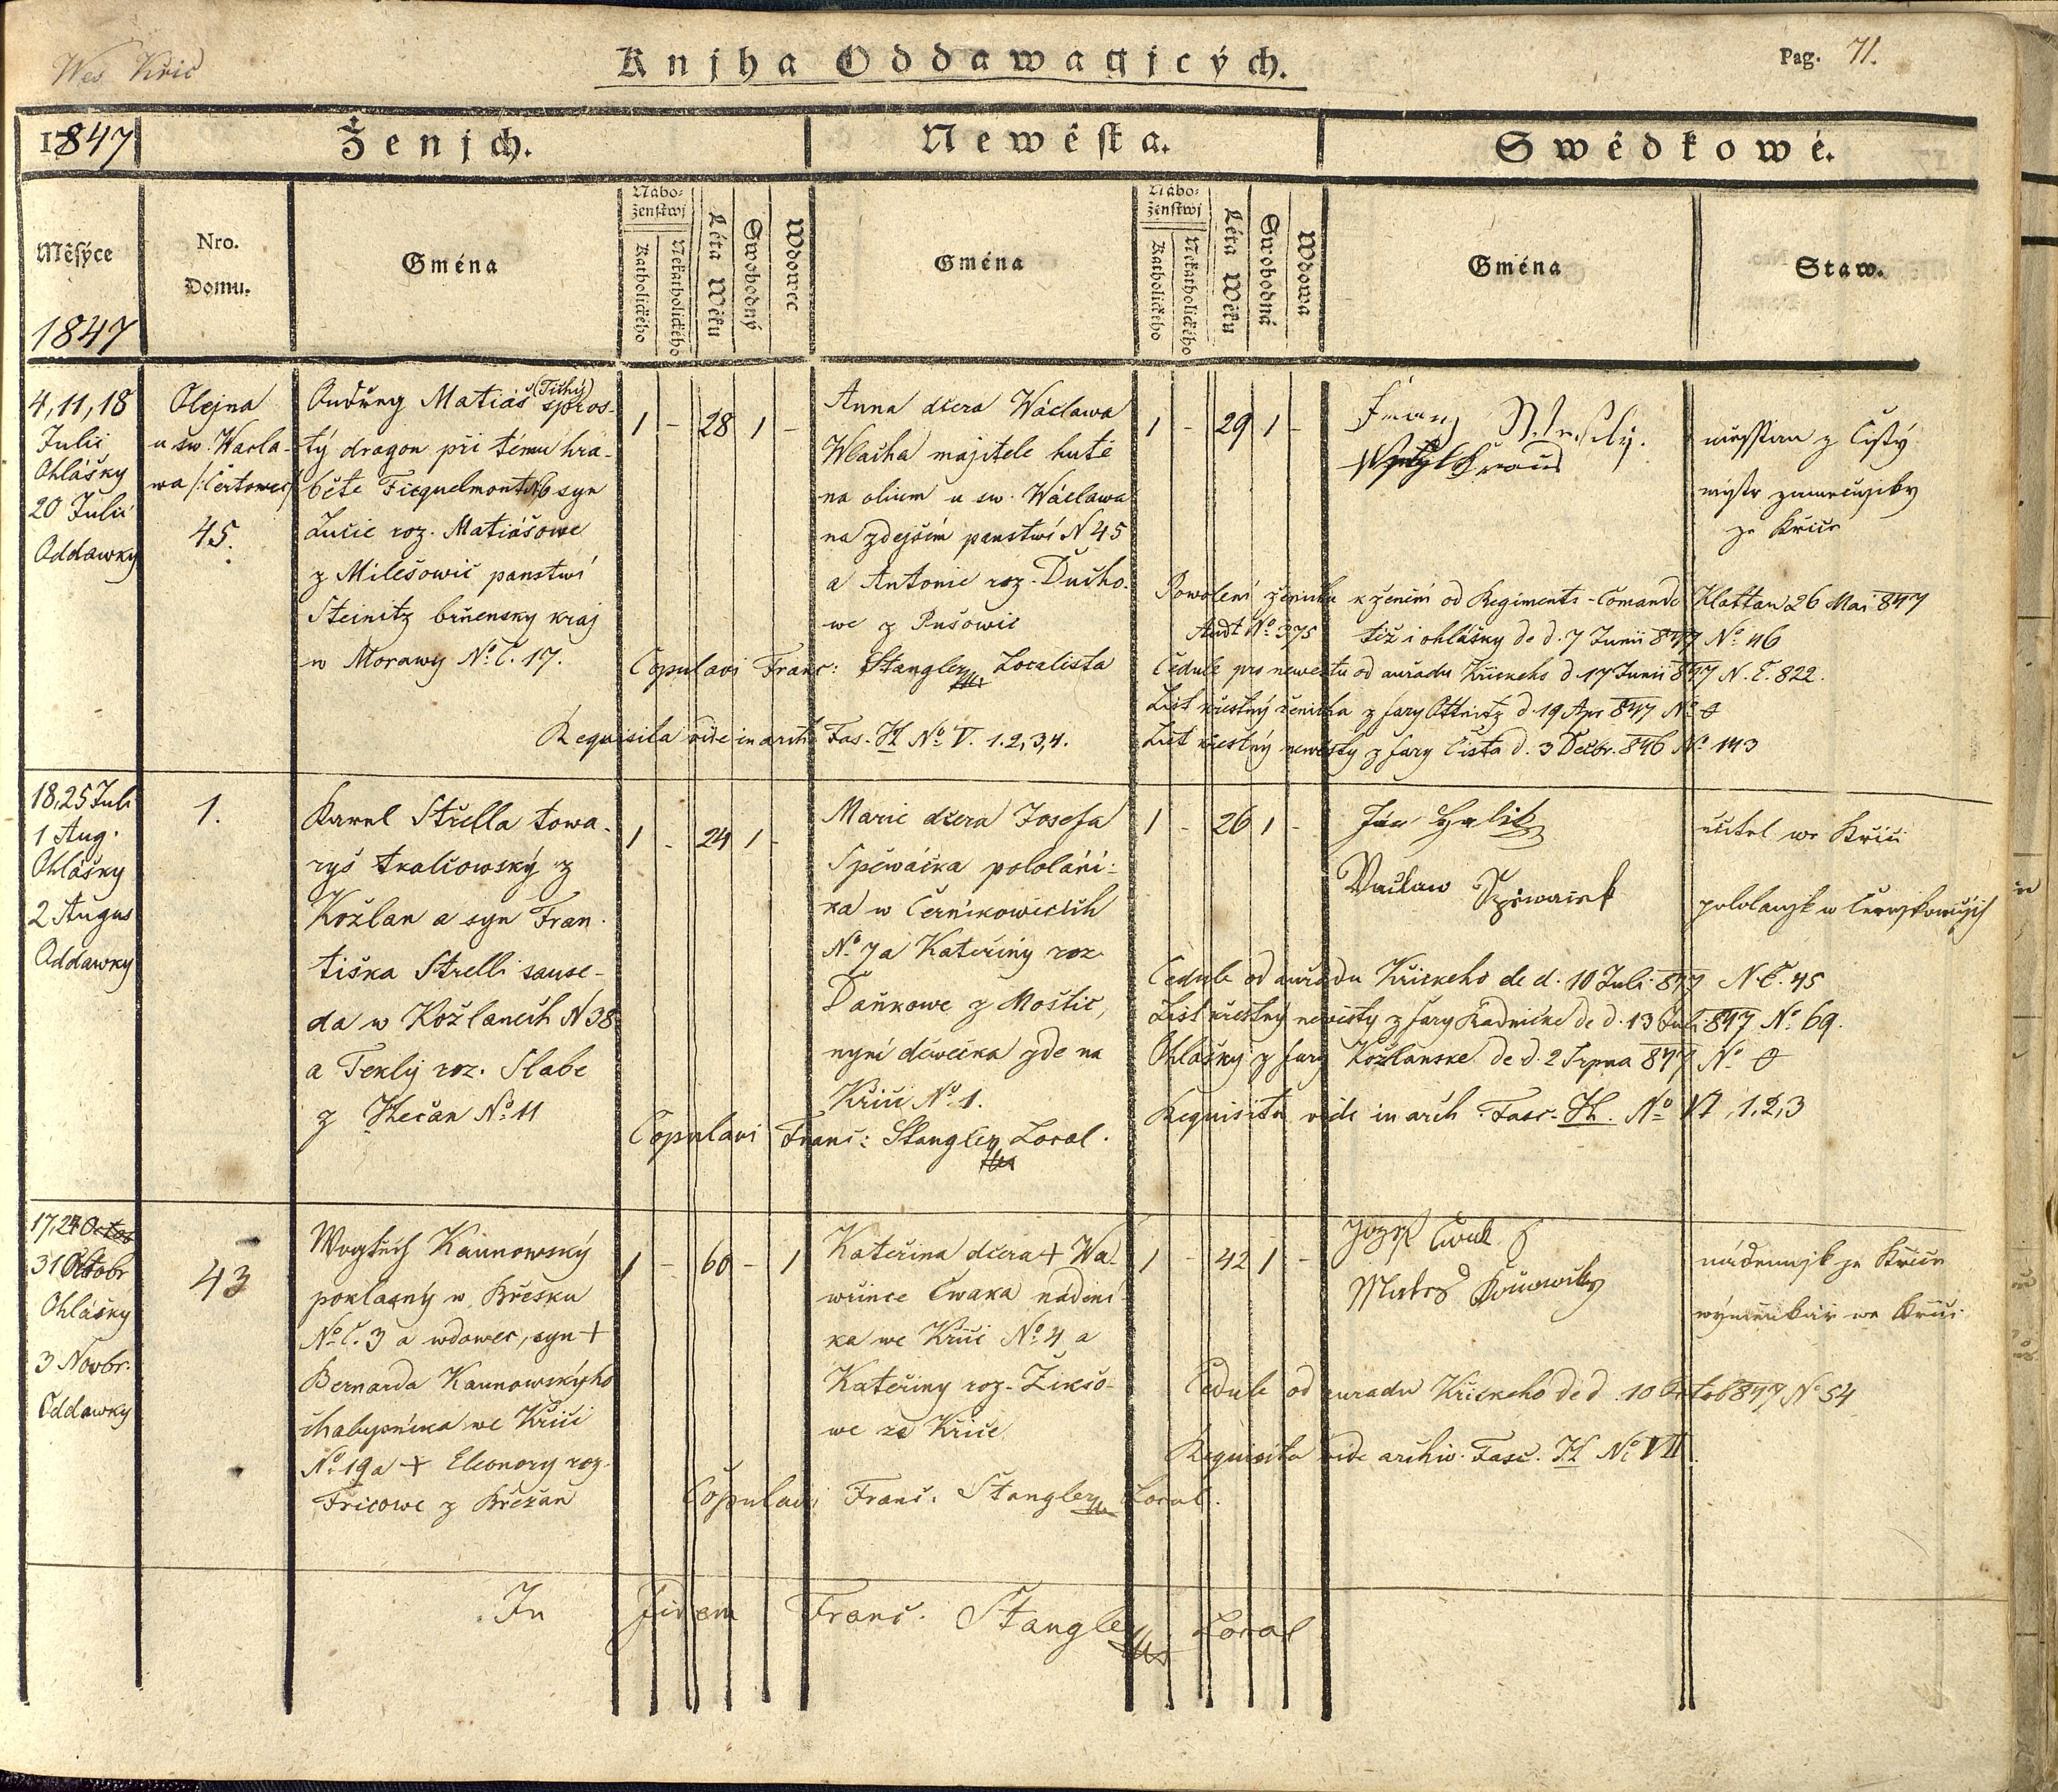 Wes Křič
Knjha Oddawagjcých.
Pag. 71.
1847
Ženjch.
Newěsta.
Swědkowé.
Měsýce
1847
Nro.
Domu.
Gména
Nábo-
ženstwj
Katholického
Nekatholického
Léta Wěku
Swobodný
Wdowec
Gména
Nábo-
ženstwj
Katholického
Nekatholického
Léta Wěku
Swobodná
Wdowa
Gména
Staw.
4, 11, 18
Julii
Ohlášky
20 Julii
Oddawky
Olejna
u sw. Wacla-
wa /: Čertowec/
45.
Ondřeg Matiáš (Tichý) spros-
tý dragon při tému hra-
běte Ficquelmont N6 syn
Lucie roz. Matiášowe
z Milešowic panstwi
Steinitz brňensky kraj
w Morawy No. Č. 17.
1 - 28 1 -
Anna dcera Wáclawa
Wlacha majitele hutě
na olium u sw. Wáclawa
na zdejšim panstwi N 45
a Antonie roz. Ducho-
we z Pušowic
1 - 29 1 -
Franz
měsstian z Čistý
mistr
ze Křiče
Powoleni ženicha k ženěni od Regiments-Comando Klattau 26 Mai 847
Audt No 375 též i ohlášky de d. 7 Junii 847 No 46
Cedule pro newestu od auřadu Křickeho d 17 Junii 847 N. Č. 822.
List křestný ženicha z fary Ottnitz d 19 Apr 847 No 0
List křestný newěsty z fary Čista d. 3 Decbr. 846 No 143
Copulavi Franc: Stangler Localista
Requisita vide in arch. Fas. H No V. 1. 2, 3, 4.
18, 25 Juli
1 Aug.
Ohlášky
2 Augus
Oddawky
1.
Karel Střella towa-
ryš tkalcowský z
Kožlan a syn Fran-
tiška Strelli sause-
da w Kožlanech N 38
a Tekly roz. Slabe
z Hečan No 11
1 - 24 1 -
Marie dcera Josefa
Spěwáčka pololáni-
ka w Černikowicich
No 7 a Kateřiny roz.
Daňkowe z Moštic,
nyni děwečka zde na
Křiči No 1.
1 - 26 1 -
Jan
Waclaw Spiwaček
učitel we Křiči
pololanjk w Černjkowicých
Cedule od auřadu Křickeho de d. 10 Juli 847 N. Č. 45
List křestný newěsty z fary Radnicke de d. 13 Juli 847 No 69.
Ohlášky z fary Kožlanske de d. 2 Srpna 847 No 0
Requisita vide in arch. Fasc. H. No VI, 1, 2, 3
Copulavi Franc: Stangler Local.
17, 24 Octob
31 Oktobr
Ohlášky
3 Novbr.
Oddawky
43
Wogtěch Kaunowský
poklasný w Břesku
No. Č. 3 a wdowec, syn +
Bernarda Kaunowskýho
chalupnika we Křiči
No 19 a + Eleonory roz.
Fricowe z Břežan
1 - 60 - 1
Kateřina dcera + Wa-
wřince Cwaka nádeni-
ka we Křiči No 4 a
Kateřiny roz. Žikšo-
we ze Křiče
1 - 42 1 -
Jozef Cwak
Mates Kounowsky
nádennjk ze Křiče
wýměnkář we Křiči
Cedule od auradu Křickeho de d. 10 Octob 847 No 54
Requisita vide archiv. Fasc. H No VII.
Copulavi Franc. Stangler Local.
In fidem Franc. Stangler Local